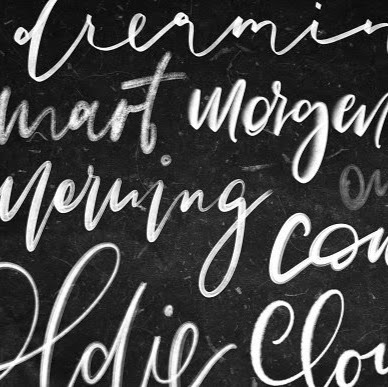 dreamin
mart morgen
merning on
con
Oldie Clou